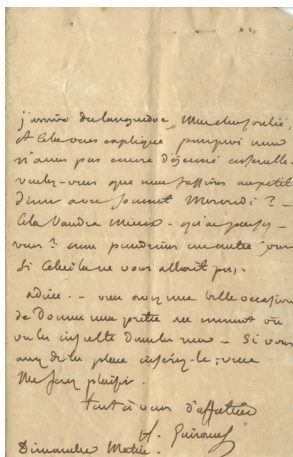 j'arrive du languedoc, Mon cher
et cela vous explique pourquoi nous
n'avons pas encore déjeuné ensemble.
voulez-vous que nous fassions un petit
diner avec Mercredi ? -
Cela vaudra mieux. qu'en pensez-
vous ? nous prendrions un autre jour
si celui là ne vous allait pas.
adieu - vous avez une belle occasion
de Donner une
. Si vous
avez de la place insérez-le ; vous
me ferez plaisir.
tout à vous d'affection
Dimanche Matin.